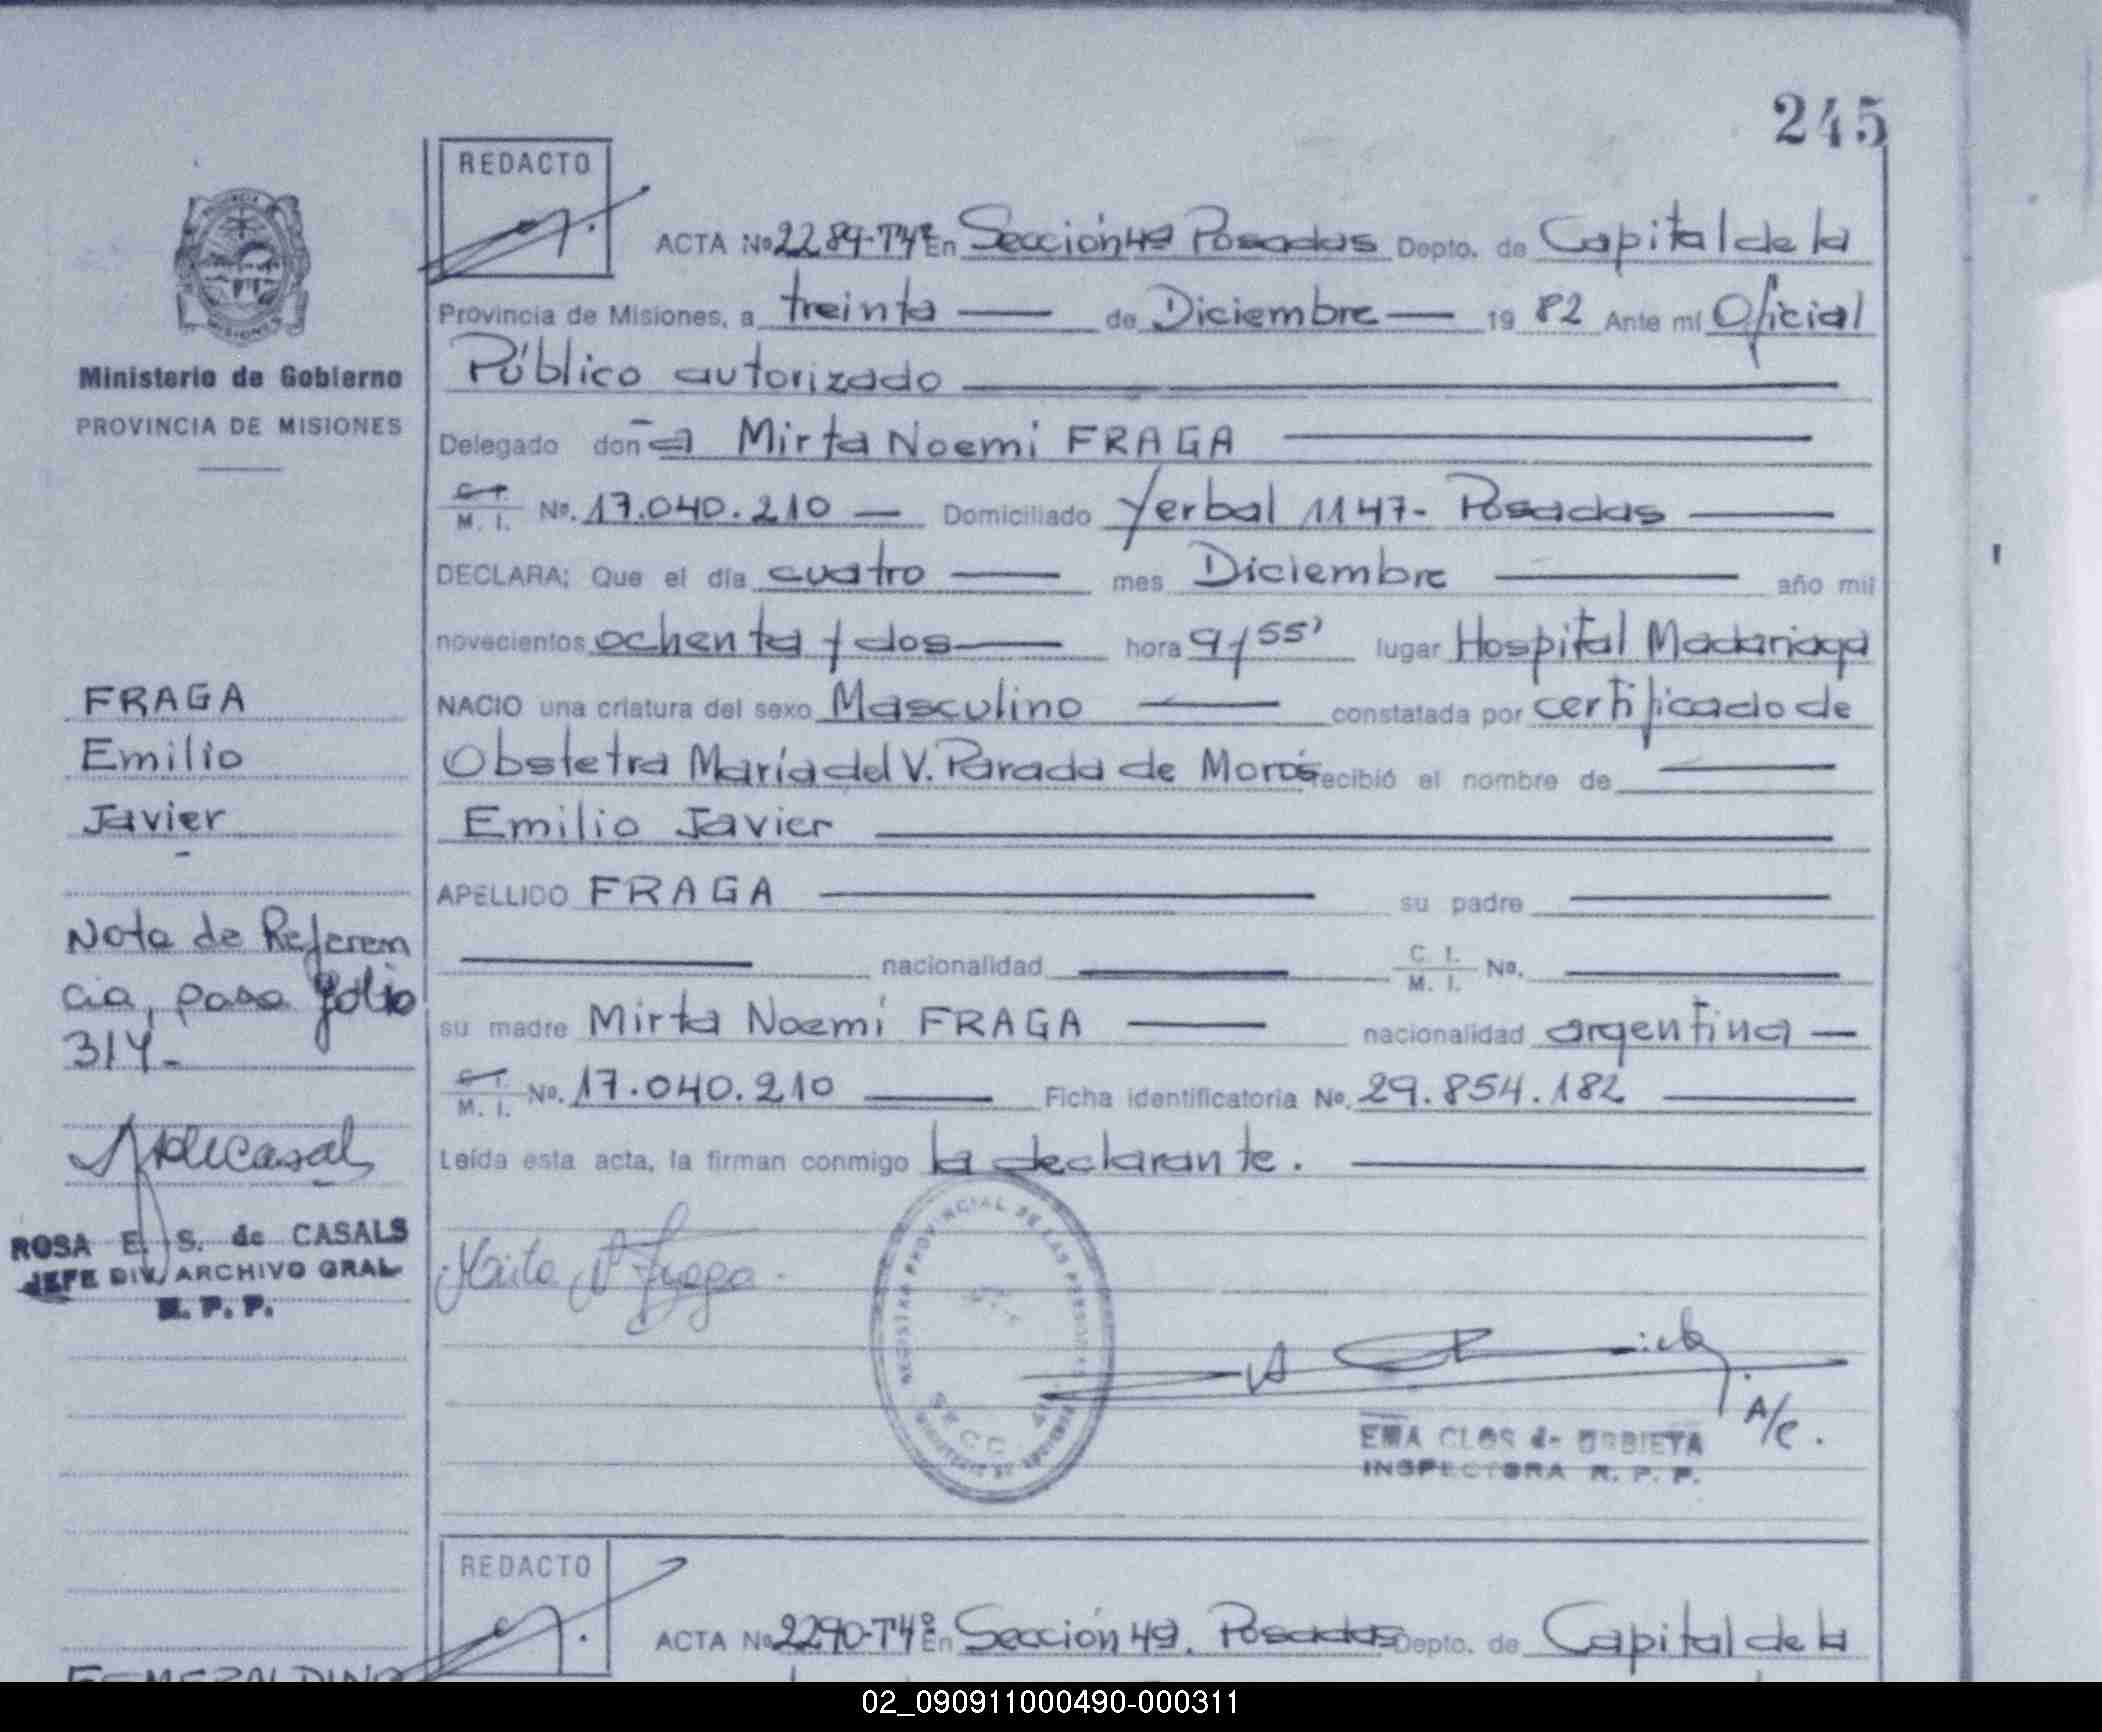 245
REDACTO
ACTA No 2289-T4º En Sección 4ª Posadas Depto. de Capital de la
Provincia de Misiones, a treinta de Diciembre 19 82 Ante mí Oficial
Público autorizado
Delegado doña Mirta Noemi FRAGA
C. I. / M. I. No. 17.040.210 Domiciliado Yerbal 1147- Posadas
DECLARA; Que el día cuatro mes Diciembre año mil
novecientos ochenta y dos hora 9 y 55' lugar Hospital Madariaga
NACIO una criatura del sexo Masculino constatada por certificado de
Obstetra María del V. Parada de Moros recibió el nombre de
Emilio Javier
APELLIDO FRAGA su padre
nacionalidad C. I. / M. I. No.
su madre Mirta Noemí FRAGA nacionalidad argentina
C. I. / M. I. No. 17.040.210 Ficha identificatoria No. 29.854.182
Leída esta acta, la firman conmigo la declarante.
Mirta N Fraga.
REGISTRO PROVINCIAL DE LAS PERSONAS
SECC
A/c.
EMA CLOS de URBIETA
INSPECTORA R. P. P.
Ministerio de Gobierno
PROVINCIA DE MISIONES
MISIONES
FRAGA
Emilio
Javier
Nota de Referen
cia, pasa folio
314-
ROSA E. S. de CASALS
JEFE DIV. ARCHIVO GRAL
R. P. P.
REDACTO
ACTA No 2290-T4º En Sección 4ª. Posadas Depto. de Capital de la
ESMERALDINO
02_090911000490-000311